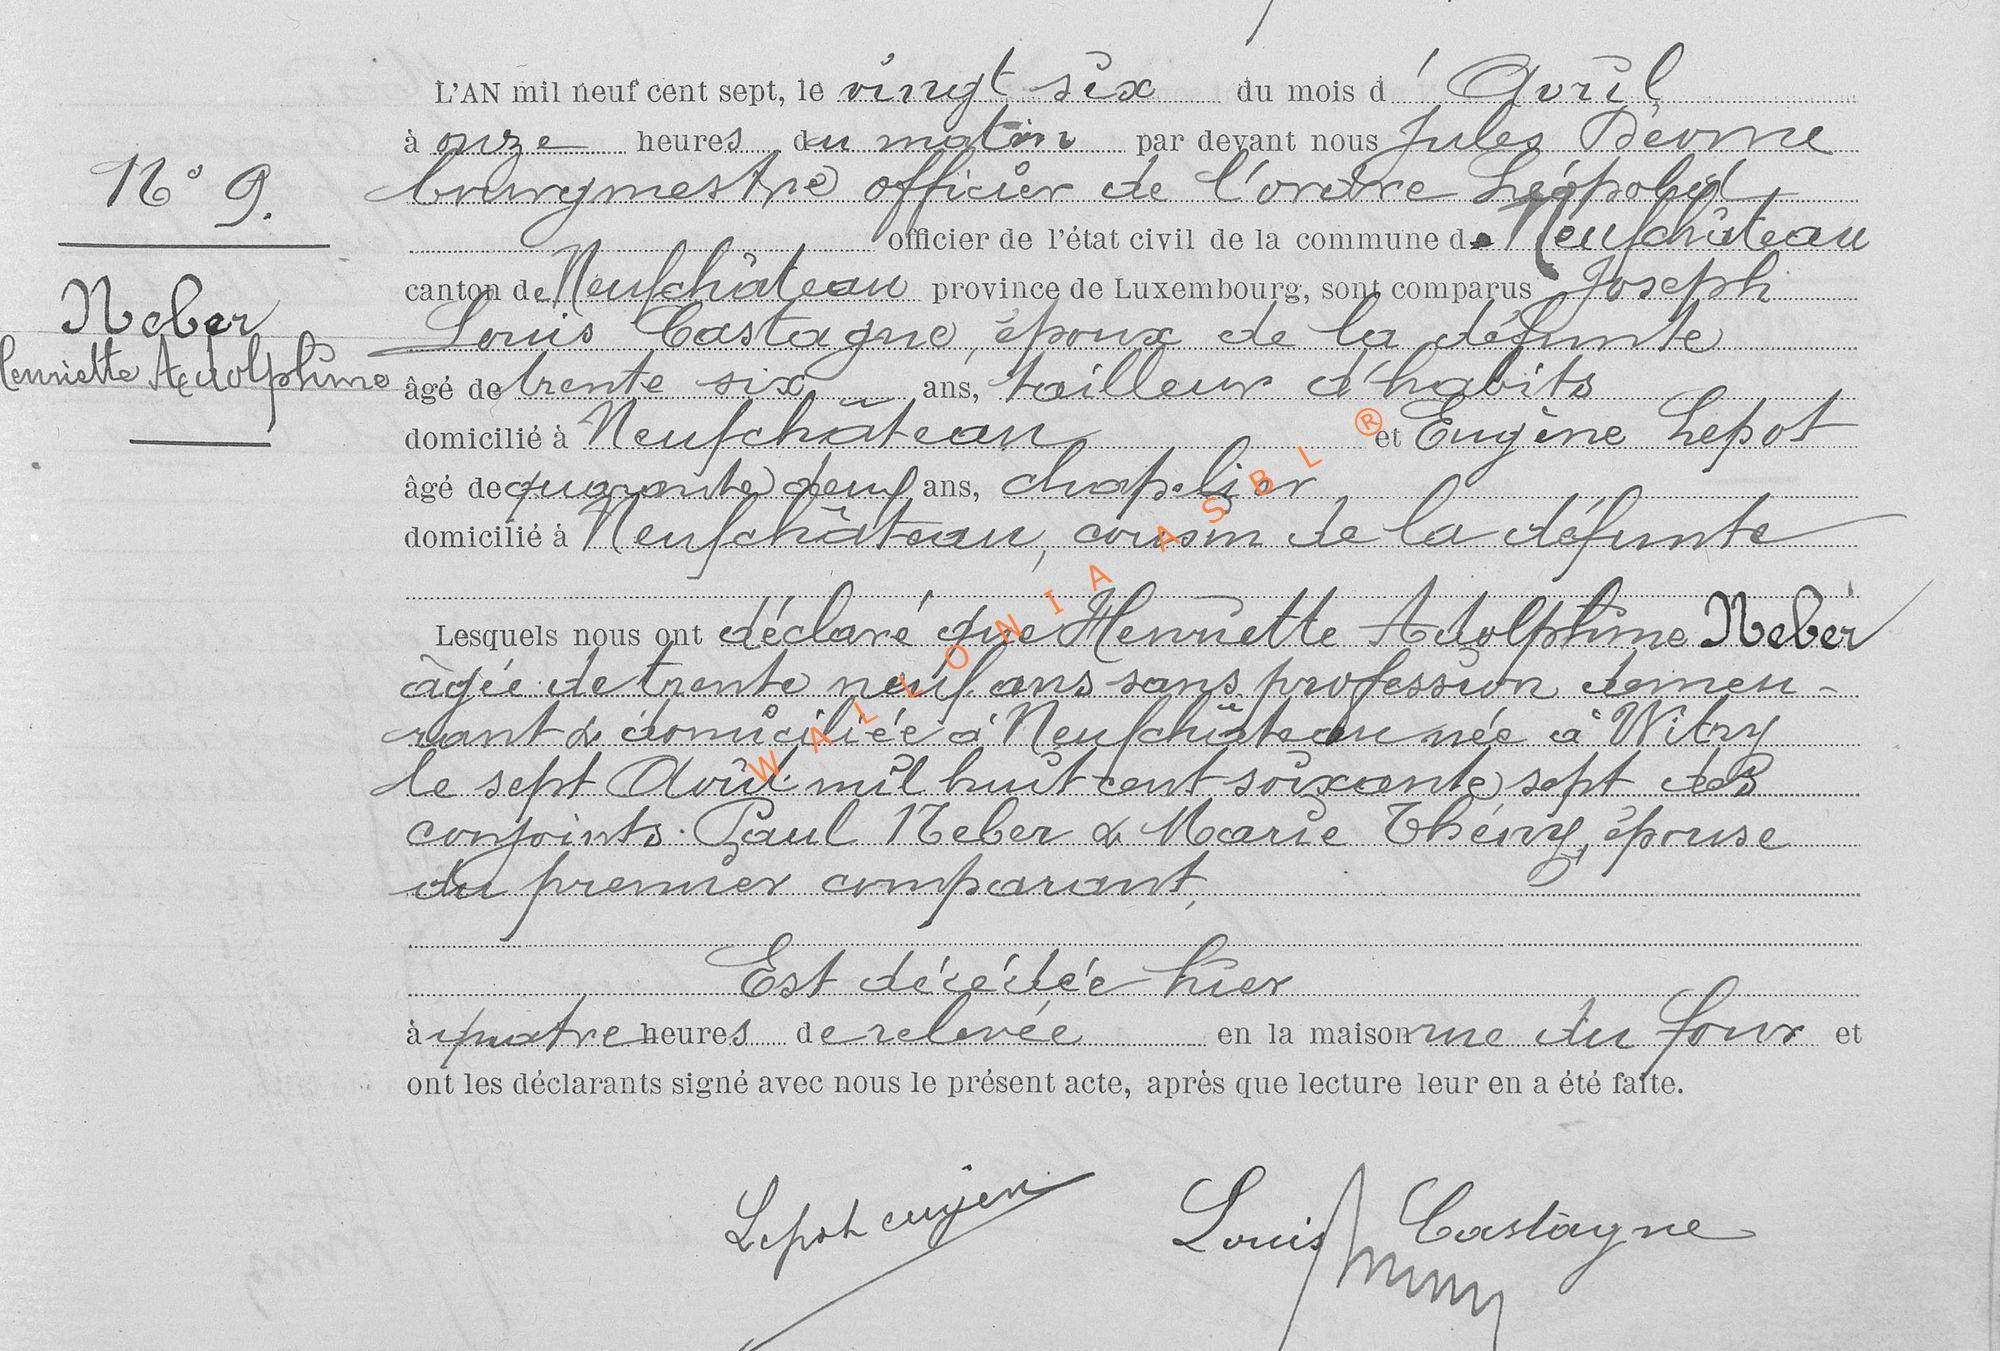 L'AN mil neuf cent sept, le vingt six du mois d'Avril
à onze heures du matin par devant nous Jules
bourgmestre officier de l'ordre Léopold
officier de l'état civil de la commune de Neufchâteau
canton de Neufchâteau province de Luxembourg, sont comparus Joseph
Louis Castagne, époux de la défunte
âgé de trente six ans, tailleur d'habits
domicilié à Neufchâteau et Eugène Lepot
âgé de quarante ans, chapelier
domicilié à Neufchâteau, cousin de la défunte
Lesquels nous ont déclaré que Henriette Adolphine Neber
âgée de trente neuf ans sans profession demeu-
rant & domiciliée à Neufchâteau née à Witry
le sept Août mil huit cent soixante sept des
conjoints Paul Neber & Marie Théiny, épouse
du premier comparant,
Est décédée hier
à quatre heures de relevée en la maison rue du four et
ont les déclarants signé avec nous le présent acte, après que lecture leur en a été faite.
N° 9.
Neber
Henriette Adolphine
Lepot eugen
Louis Castagne
WALLONIA ASBL ®